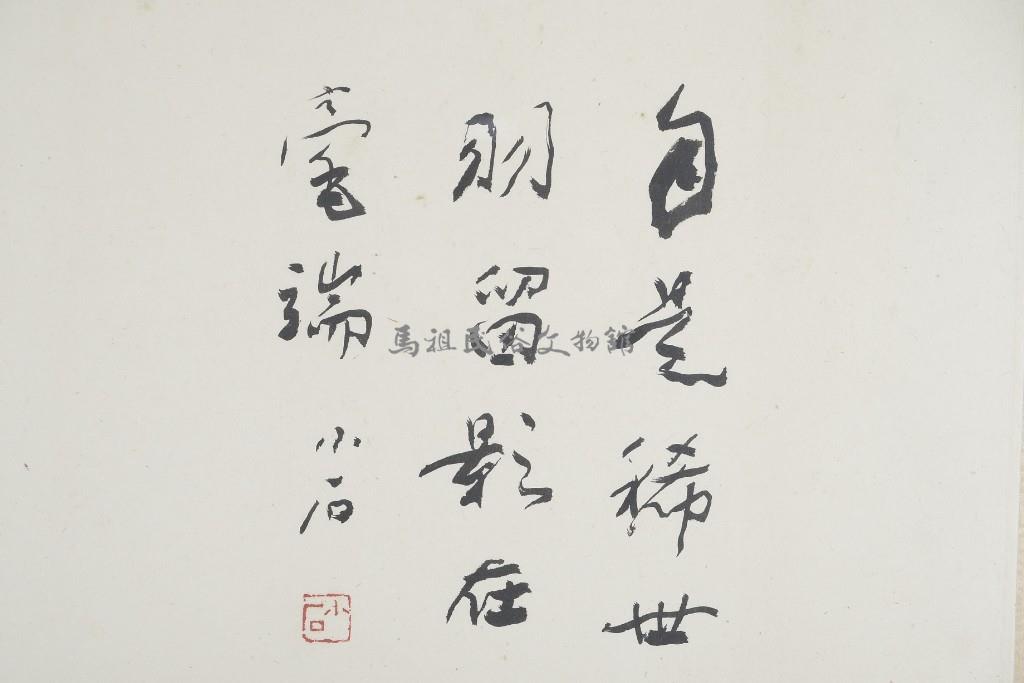 自是稀世
朋留影在
毫端
小石
小石
馬祖民俗文物館